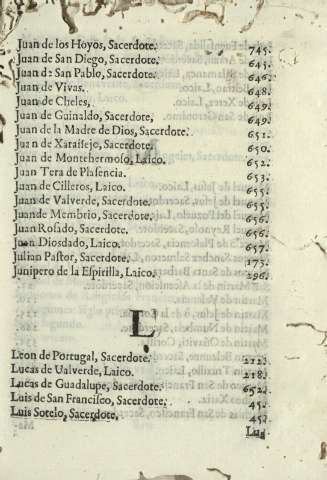 Juan de los Hoyos, Sacerdote. 745.
Juan de San Diego, Sacerdote. 645.
Juan de San Pablo, Sacerdote. 646.
Juan de Vivas. 648.
Juan de Cheles, 649.
Juan de Guinaldo, Sacerdote, 649.
Juan de la Madre de Dios, Sacerdote. 651.
Juan de Xaraisejo, Sacerdote. 650.
Juan de Montehermoso, Laico. 652.
Juan Tera de Plasencia. 653.
Juan de Cilleros, Laico. 655.
Juan de Valverde, Sacerdote. 655.
Juan de Membrio, Sacerdote. 656.
Juan Rosado, Sacerdote. 656.
Juan Diosdado, Laico. 657.
Julian Pastor, Sacerdote. 175.
Junipero de la Espirilla, Laico. 296.
L
Leon de Portugal, Sacerdote. 212.
Lucas de Ualverde, Laico. 218.
Lucas de Guadalupe, Sacerdote. 652.
Luis de San Francisco, Sacerdote. 45.
Luis Sotelo, Sacerdote. 45.
Luis